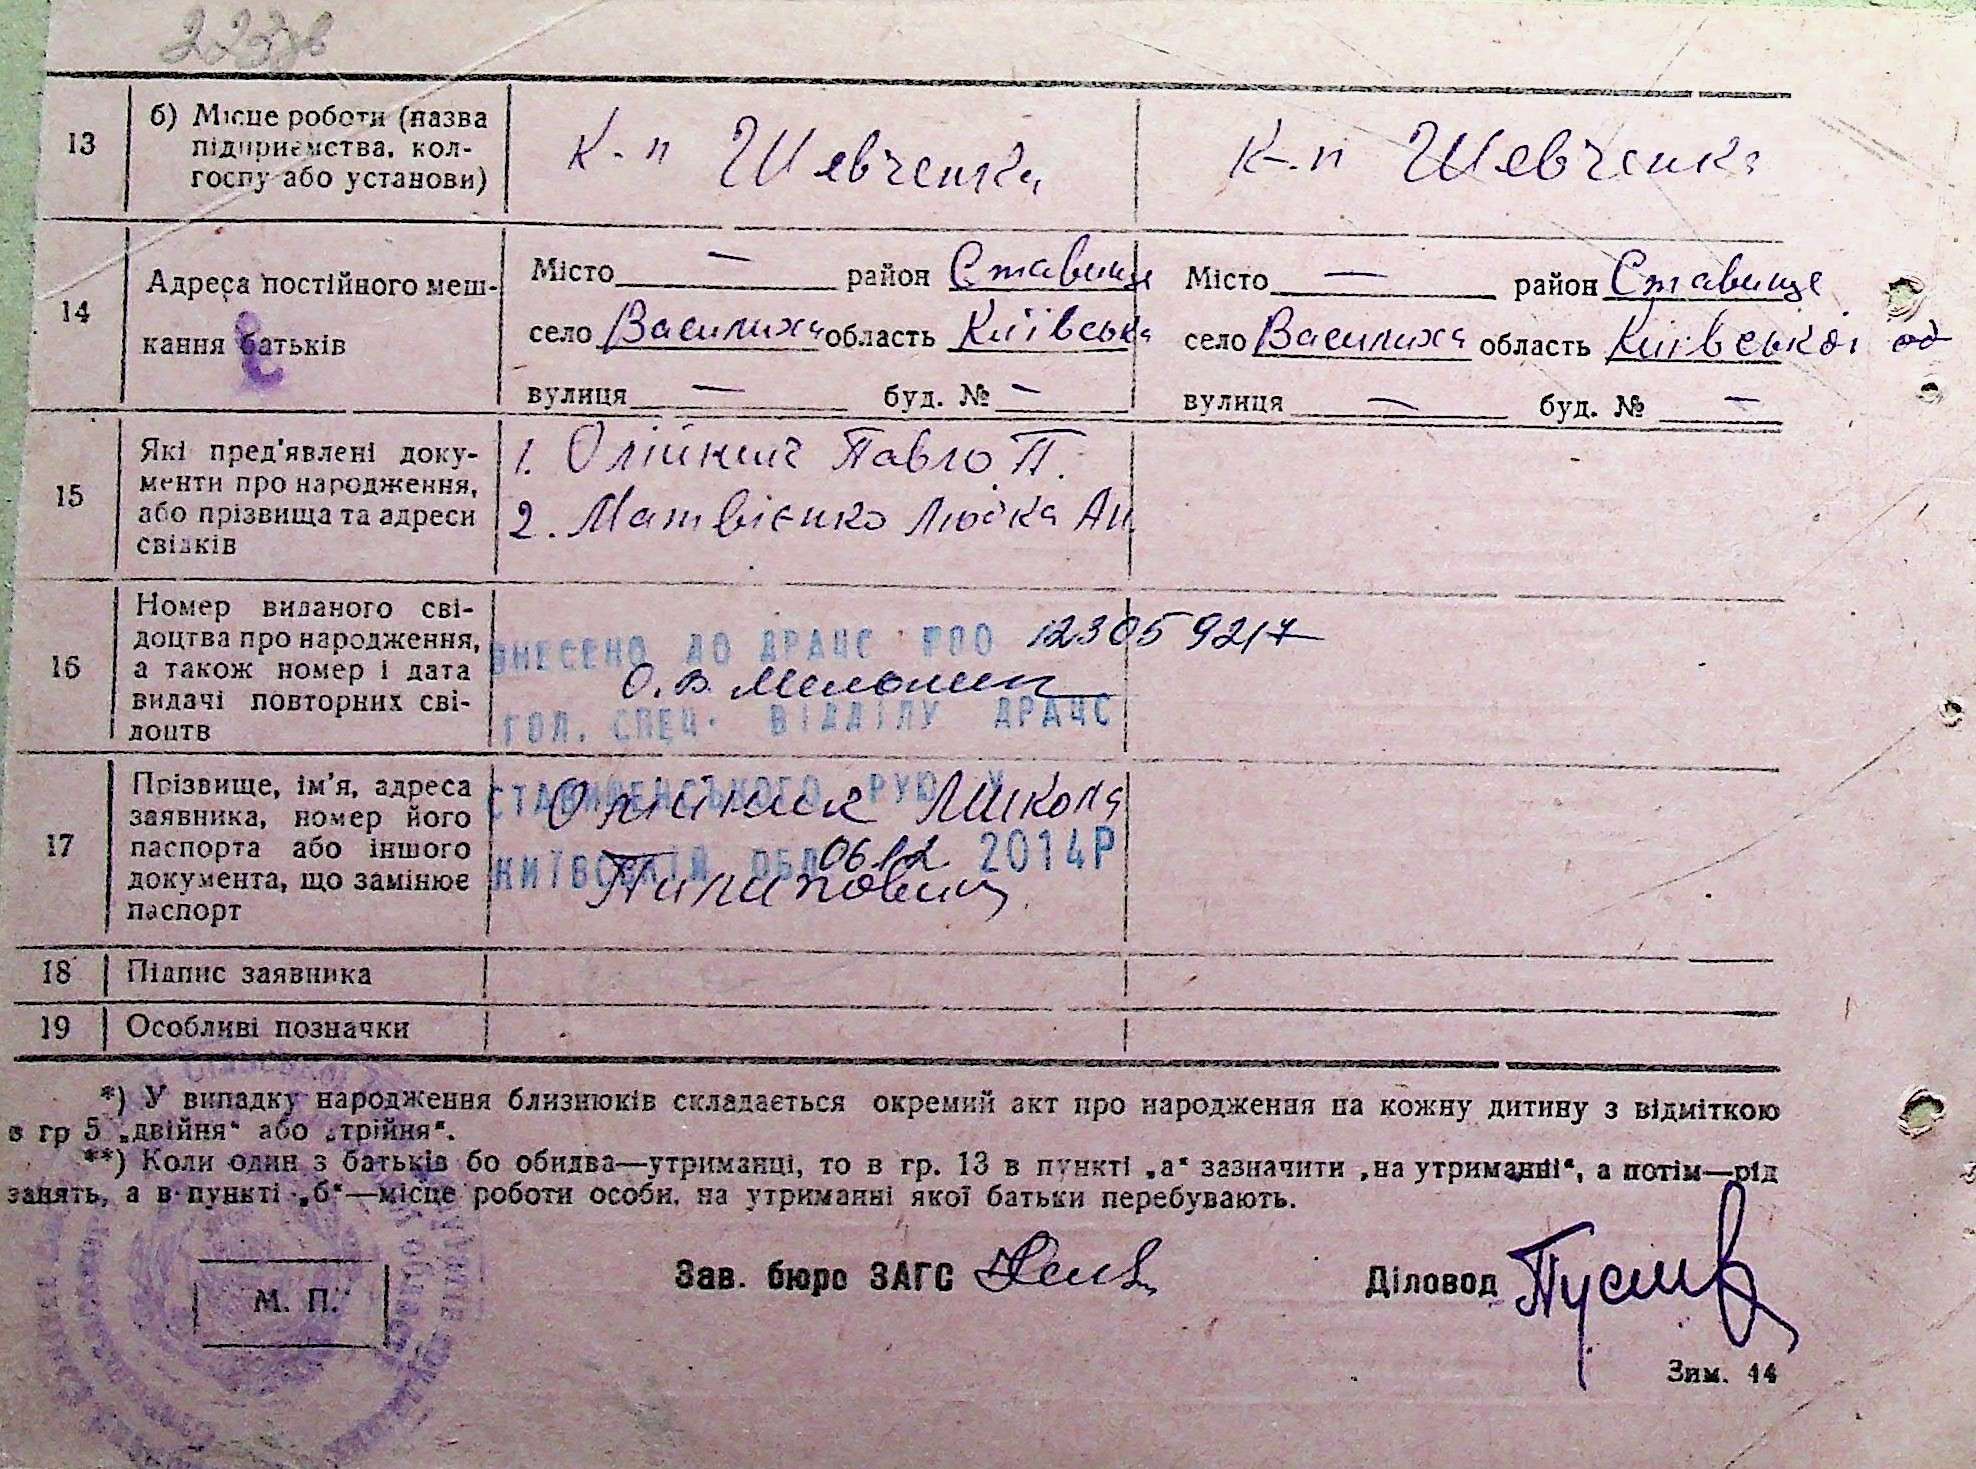 13
б) Місце роботи (назва
підприємства, кол-
госпу або установи)
К-п Шевченка
К-п Шевченка
14
Адреса постійного меш-
кання батьків
Місто — район Ставище
село Василиха область Київська
вулиця — буд. № —
Місто — район Ставище
село Василиха область Київської об
вулиця — буд. № —
15
Які пред'явлені доку-
менти про народження,
або прізвища та адреси
свідків
1. Олійник Павло П.
2. Матвієнко Любка Ан
16
Номер виданого сві-
доцтва про народження,
а також номер і дата
видачі повторних сві-
доцтв
ВНЕСЕНО ДО ДРАЦС РПО 123059217
О.В.
ГОЛ. СПЕЦ. ВІДДІЛУ ДРАЦС
17
Прізвище, ім'я, адреса
заявника, номер його
паспорта або іншого
документа, що замінює
паспорт
СТАВИЩЕНСЬКОГО РУЮ У
Олійник Микола
КИЇВСЬКІЙ ОБЛ 06.12. 2014Р
Пилипович
18
Підпис заявника
19
Особливі позначки
*) У випадку народження близнюків складається окремий акт про народження на кожну дитину з відміткою
в гр 5 „двійня“ або „трійня“.
**) Коли один з батьків бо обидва—утриманці, то в гр. 13 в пункті „а“ зазначити „на утриманні“, а потім—рід
занять, а в пункті „б“—місце роботи особи, на утриманні якої батьки перебувають.
М. П.
Зав. бюро ЗАГС
Діловод
Зим. 44